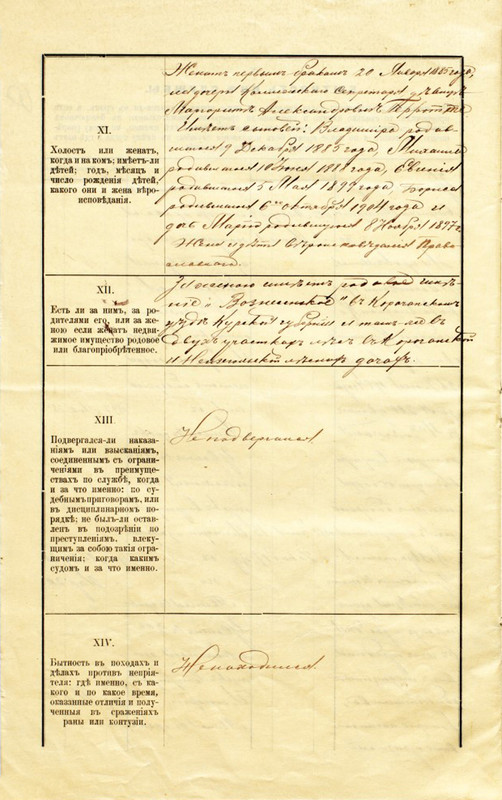 XI.
Холостъ или женатъ,
когда и на комъ; имѣетъ-ли
дѣтей; годъ, мѣсяцъ и
число рожденія дѣтей,
какого они и жена вѣро-
исповѣданія.
Женатъ первымъ бракомъ 20 Января 1885 года,
на дочери Секретаря
Маргаритѣ Александровнѣ
Имѣетъ сыновей: Владиміра родив-
шагося 9 Декабря 1885 года, Михаила
родившагося 10 Іюня 1888 года, Евгенія
родившагося 5 Мая 1899 года Бориса
родившагося 6го октября 1904 года и
дочь Марію родившуюся 8 Ноября 1897 г.
Жена и дѣти вѣроисповѣданія Право-
славнаго.
XII.
Есть ли за нимъ, за ро-
дителями его, или за же-
ною если женатъ недви-
жимое имущество родовое
или благопріобрѣтенное.
За женою имѣетъ родовое имѣ-
ніе „Вознесенское" въ Корочанскомъ
уѣздѣ Курской губерніи и тамъ же въ
двухъ участкахъ въ Корочанской
и дачахъ.
XIII.
Подвергался-ли наказа-
ніямъ или взысканіямъ,
соединеннымъ съ ограни-
ченіями въ преимуще-
ствахъ по службѣ, когда
и за что именно: по су-
дебнымъ приговорамъ, или
въ дисциплинарномъ по-
рядкѣ; не былъ-ли остав-
ленъ въ подозрѣніи по
преступленіямъ, влеку-
щимъ за собою такія огра-
ниченія; когда какимъ
судомъ и за что именно.
Неподвергался
XIV.
Бытность въ походахъ и
дѣлахъ противъ непрія-
теля: гдѣ именно, съ ка-
кого и по какое время,
оказанные отличія и полу-
ченныя въ сраженіяхъ
раны или контузіи.
Ненаходился